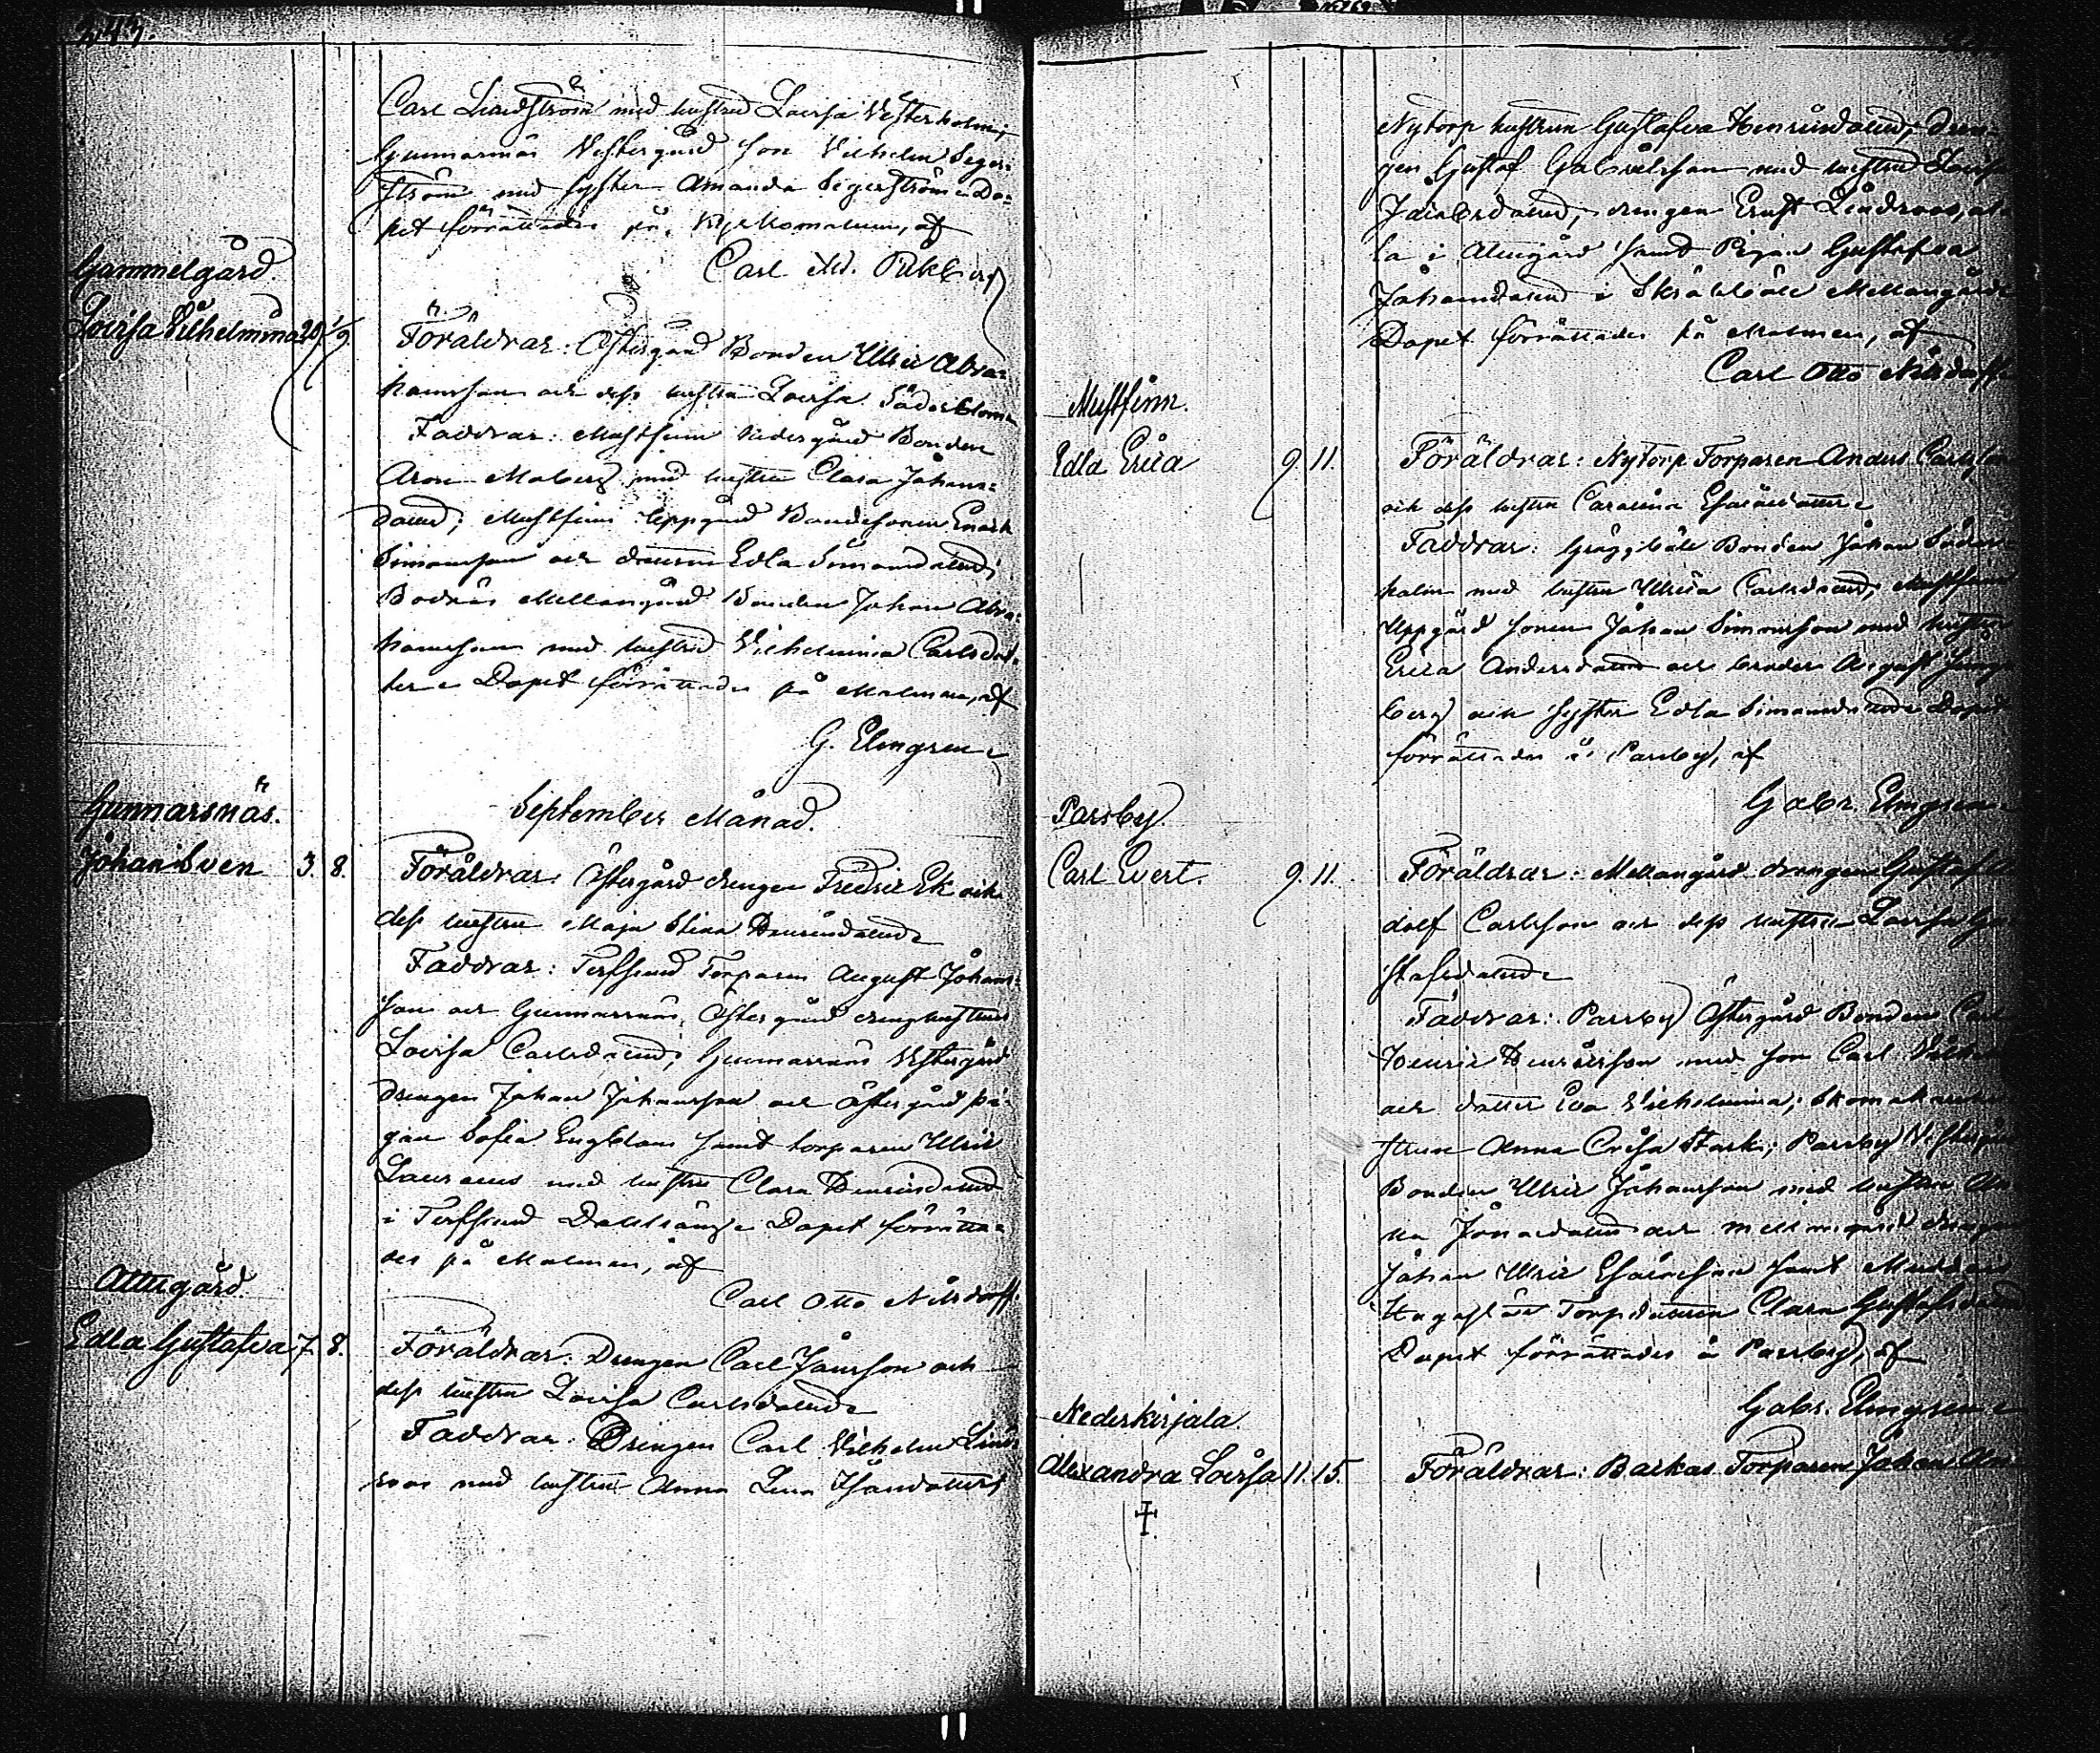 243.
Carl Lindström med hustrun Lovisa Vesterholm;
Gunnarsnäs Vestergård son Vilhelm Seger-
ström med syster Amanda Segerström. Do-
pet förrättades på Kyrkomalmen, af
Carl Ad. Pükberg
Gammelgård.
Lovisa Vilhelmina 29. 1/9.
Föräldrar: Östergård Bonden Ulric Abra-
hamsson och dess hustru Lovisa Söderblom.
Faddrar: Mustfinn Nedergård Bonden
Aron Moberg med hustru Clara Johans-
dotter; Mustfinn Uppgård Bondesonen Enoch
Simonsson och dottren Edla Simonsdotter;
Bodnäs Mellangård Bonden Johan Abra-
hamsson med hustrun Vilhelmina Carlsdot-
ter. Dopet förrättades på Malmen, af
G. Elmgren
September Månad.
Gunnarsnäs.
Johan Sven 3. 8.
Föräldrar: Östergård drengen Fredric Ek och
dess hustru Maja Stina Henricsdotter
Faddrar: Terfsund Torparen August Johans-
son och Gunnarsnäs Östergård drenghustrun
Lovisa Carlsdotter; Gunnarsnäs Vestergård
drengen Johan Johansson och Östergård pi-
gan Sofia Engblom samt torparen Ulric
Laurenus med hustru Clara Henricsdotter
i Terfsund Dopet förrätta-
des på Malmen, af
Carl Otto Nilsdorff.
Attugård.
Edla Gustafva 7. 8.
Föräldrar: Drengen Carl Jansson och
dess hustru Lovisa Carlsdotter
Faddrar: Drengen Carl Vilhelm Lind-
roos med hustru Anna Lena
Nytorp hustrun Gustafva Henricsdotter; dren-
gen Gustaf Gabrielsson med hustrun Lovisa
Jacobsdotter, drengen Ernst Lindroos, al-
la i Attugård samt Pigan Gustafva
Johansdotter i Skräbböle Mellangård
Dopet förrättades på Malmen, af
Carl Otto Nilsdorff
Mustfinn.
Edla Erica 9. 11.
Föräldrar: Nytorp Torparen Anders Carlsson
och dess hustru Carolina Esaiædotter
Faddrar: Gräggböle Bonden Johan Söder-
holm med hustru Ulrica Carlsdotter; Mustfinn
Uppgård sonen Johan Simonsson med hustru
Erica Andersdotter och broder August
berg och syster Edla Simonsdotter Dopet
förrättades i Parsby, af
Gabr. Elmgren
Parsby.
Carl Evert. 9. 11.
Föräldrar: Mellangård drengen Gustaf
dolf Carlsson och dess hustru Lovisa Gu-
stafsdotter
Faddrar: Parsby Östergård Bonden Carl
Henric Henricsson med son Carl
och dotter Eva Vilhelmina; Skomakare
strun Anna Cajsa Stark; Parsby Vestergård
Bonden Ulric Johansson med hustru An-
na Jonasdotter och Mellangård drengen
Johan Ulric Esaiæson samt
Torpdottren Clara Gustafsdotter
Dopet förrättades i Parsby, af
Gabr. Elmgren
Nederkirjala.
Alexandra Lovisa 11. 15.
Föräldrar: Backas Torparen Johan